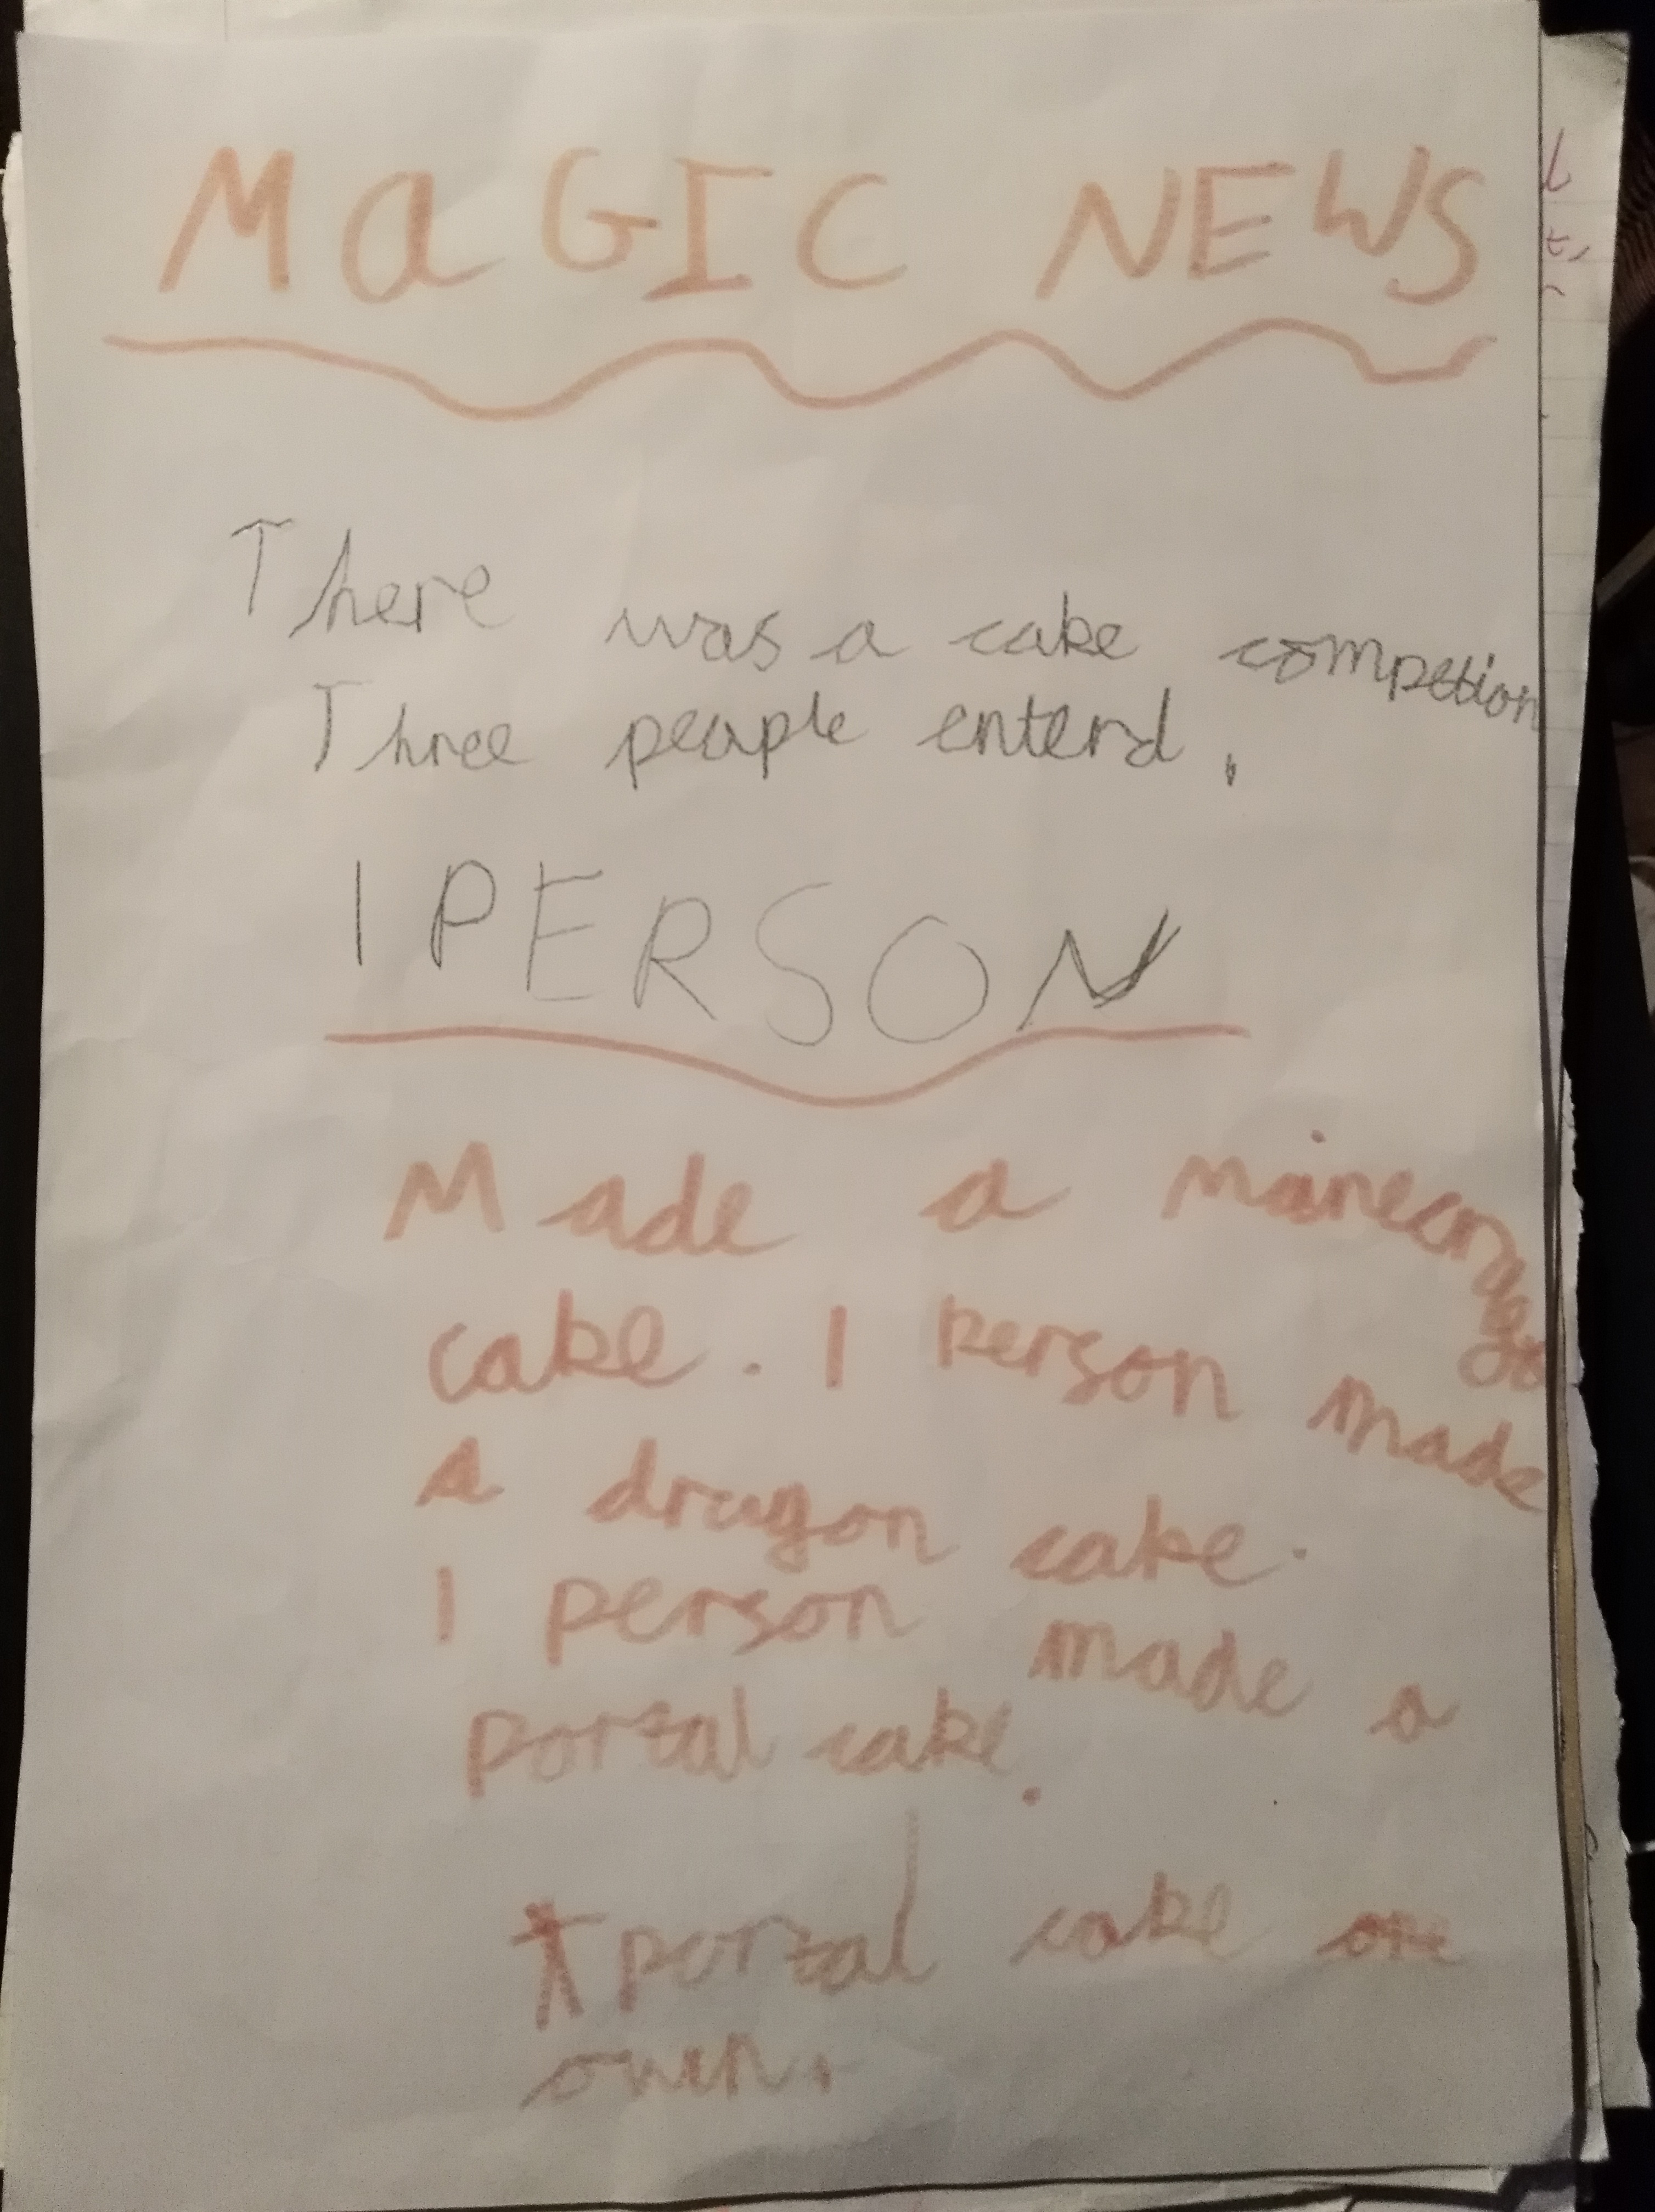 MaGIC NEWS
There was a cake compettion
Three people enterd.
1 PERSON
Made a
cake. 1 person made
a dragon cake.
1 person made a
portal cake.
portal cake